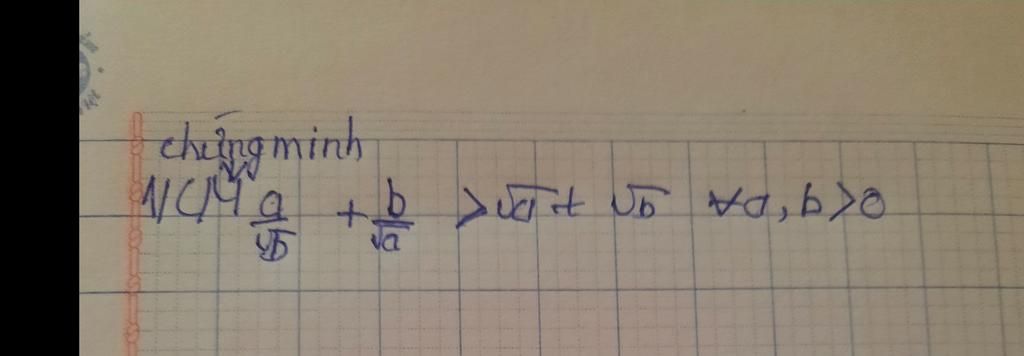 chứng minh
1/ CM a/√b + b/√a > √a + √b ∀a, b > 0